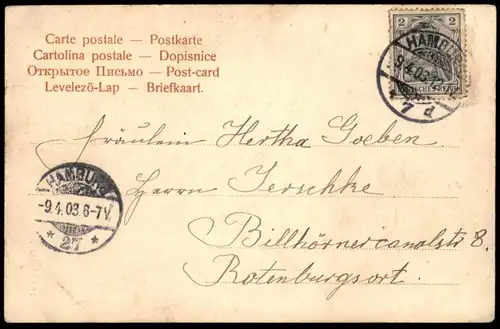 Carte postale — Postkarte
Cartolina postale — Dopisnice
Открытое Письмо — Post-card
Levelező-Lap — Briefkaart.
2 2
HAMBURG
-9.4.03
7 d
Fräulein Hertha Goeben
Herrn Jerschke
Billhörnercanalstr 8.
Rotenburgsort.
HAMBURG
-9.4.03.6-7V.
* 27 *